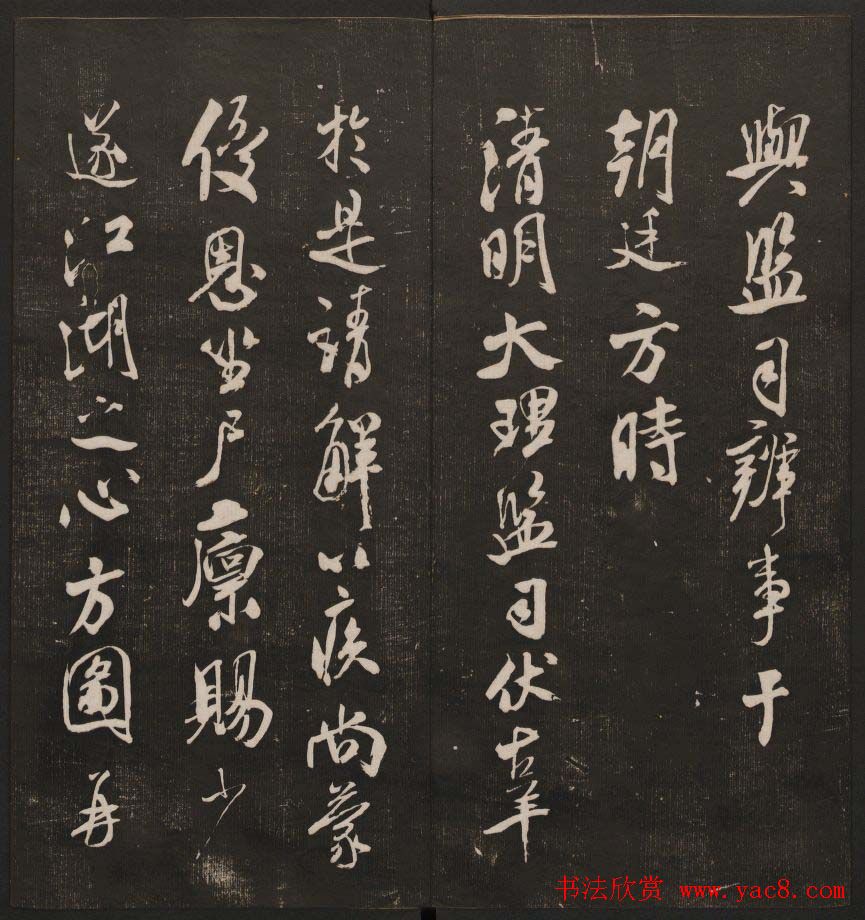 與監司辨事于
朝廷方時
清明大理監司伏辜
於是請解以疾尚蒙
優恩坐尸廩賜少
遂江湖之心方圖再
书法欣赏 www.yac8.com